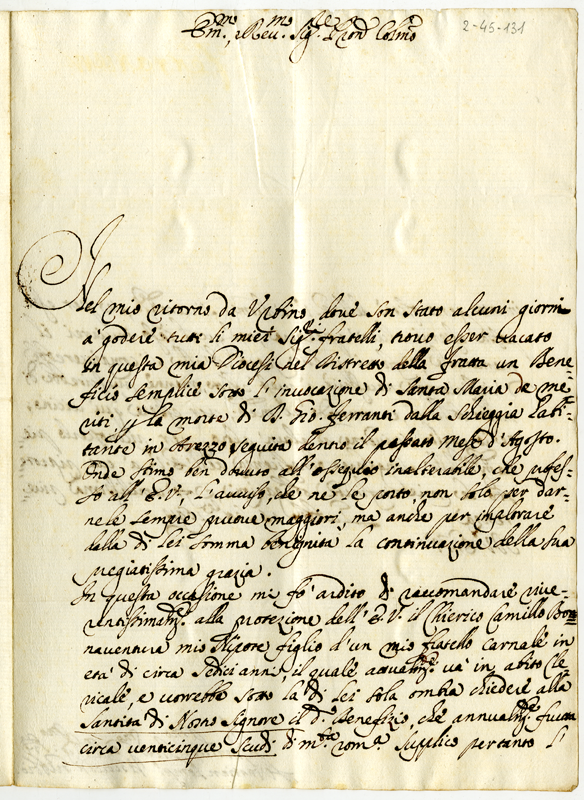 Em.mo, e Rev.mo Sig.re P̃ron Colmo
2-45-131
Nel mio ritorno da Urbino, dove son stato alcuni giorni
a godere tutti li miei Sig.ri fratelli, trovo esser vacato
in questa mia Diocesi nel Distretto della Fratta un Bene=
ficio semplice sotto l'invocazione di Santa Maria de me
riti, p la morte di D. Gio. Ferranti dalla Scheggia habi=
tante in Arezzo seguita dentro il passato Mese d'Agosto.
Onde stimo ben dovuto all'ossequio inalterabile, che profes=
so all'E.V., l'avviso, che ne le porto, non solo per dar=
nele sempre prove maggiori, ma anche per implorare
dalla di lei somma benignità la continuazione della sua
pregiatissima grazia.
In questa occasione mi fò ardito di raccomandare rive=
rentissimam.te alla protezione dell'E.V. il Chierico Camillo Bon
naventura mio Nipote figlio d'un mio fratello carnale in
età di circa sedici anni, il quale attualm.te và in abito Cle
ricale, e vorrebbe sotto la di lei sola ombra chiedere alla
Santità di Nostro Signore il d.o Benefizio, che annualm.te frutta
circa venticinque scudi di m.ta rom.a Supplico pertanto l'